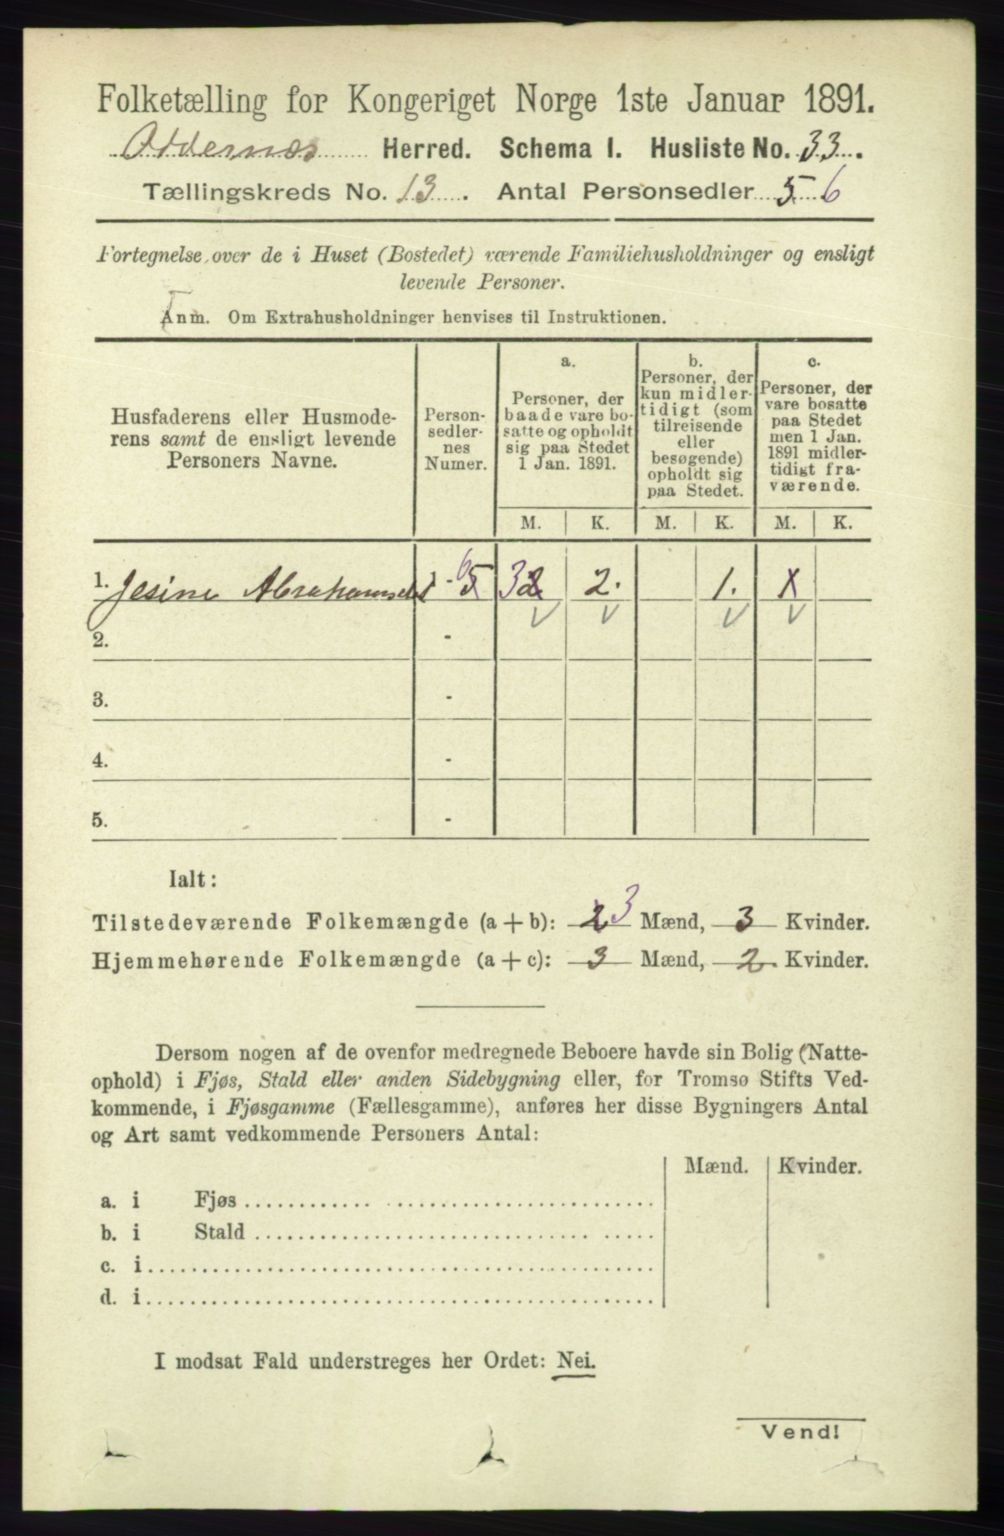 Folketælling for Kongeriget Norge 1ste Januar 1891.
Oddernæs Herred. Schema I. Husliste No. 33.
Tællingskreds No. 13. Antal Personsedler 5 6
Fortegnelse over de i Huset (Bostedet) værende Familiehusholdninger og ensligt
levende Personer.
Anm. Om Extrahusholdninger henvises til Instruktionen.
Husfaderens eller Husmode-
rens samt de ensligt levende
Personers Navne.
Person-
sedler-
nes
Numer.
a.
Personer, der
baade vare bo-
satte og opholdt
sig paa Stedet
1 Jan. 1891.
b.
Personer, der
kun midler-
tidigt (som
tilreisende
eller
besøgende)
opholdt sig
paa Stedet.
c.
Personer, der
vare bosatte
paa Stedet
men 1 Jan.
1891 midler-
tidigt fra-
værende.
M. K. M. K. M. K.
1. Jesine Abrahamsdel 1 - 5 6 3 2 2. 1. 1
2. -
3. -
4. -
5. -
Ialt:
Tilstedeværende Folkemængde (a + b): 2 3 Mænd, 3 Kvinder.
Hjemmehørende Folkemængde (a + c): 3 Mænd, 2 Kvinder.
Dersom nogen af de ovenfor medregnede Beboere havde sin Bolig (Natte-
ophold) i Fjøs, Stald eller anden Sidebygning eller, for Tromsø Stifts Ved-
kommende, i Fjøsgamme (Fællesgamme), anføres her disse Bygningers Antal
og Art samt vedkommende Personers Antal:
Mænd. Kvinder.
a. i Fjøs
b. i Stald
c. i
d. i
I modsat Fald understreges her Ordet: Nei.
Vend!